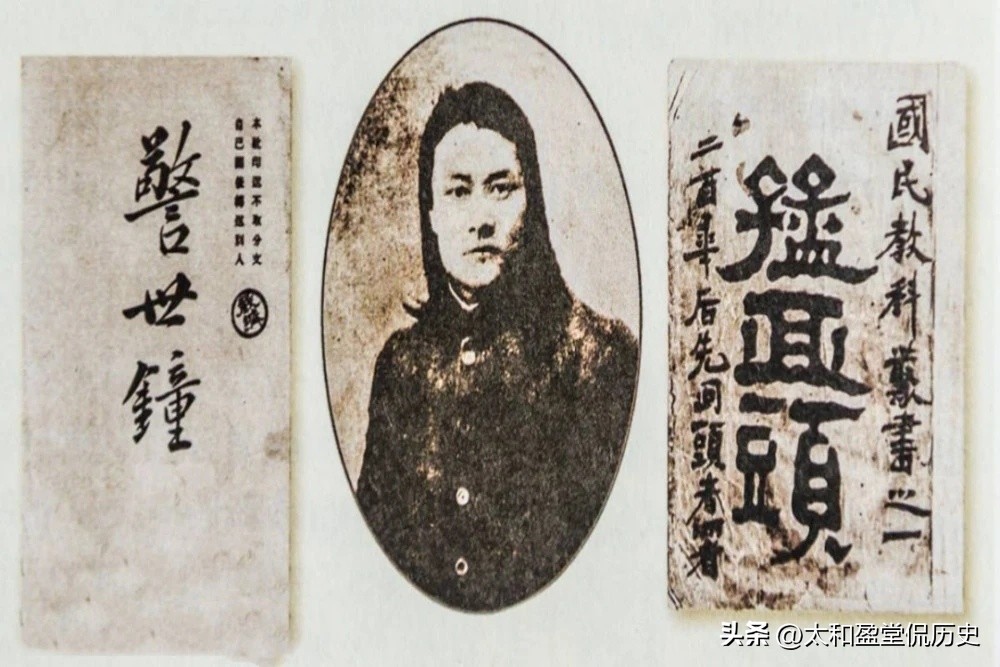 本社印送不取分文
自己閱後轉送別人
警世鐘
國民教科叢書之一
猛回頭
后先回頭者
头条 @太和盈堂侃历史